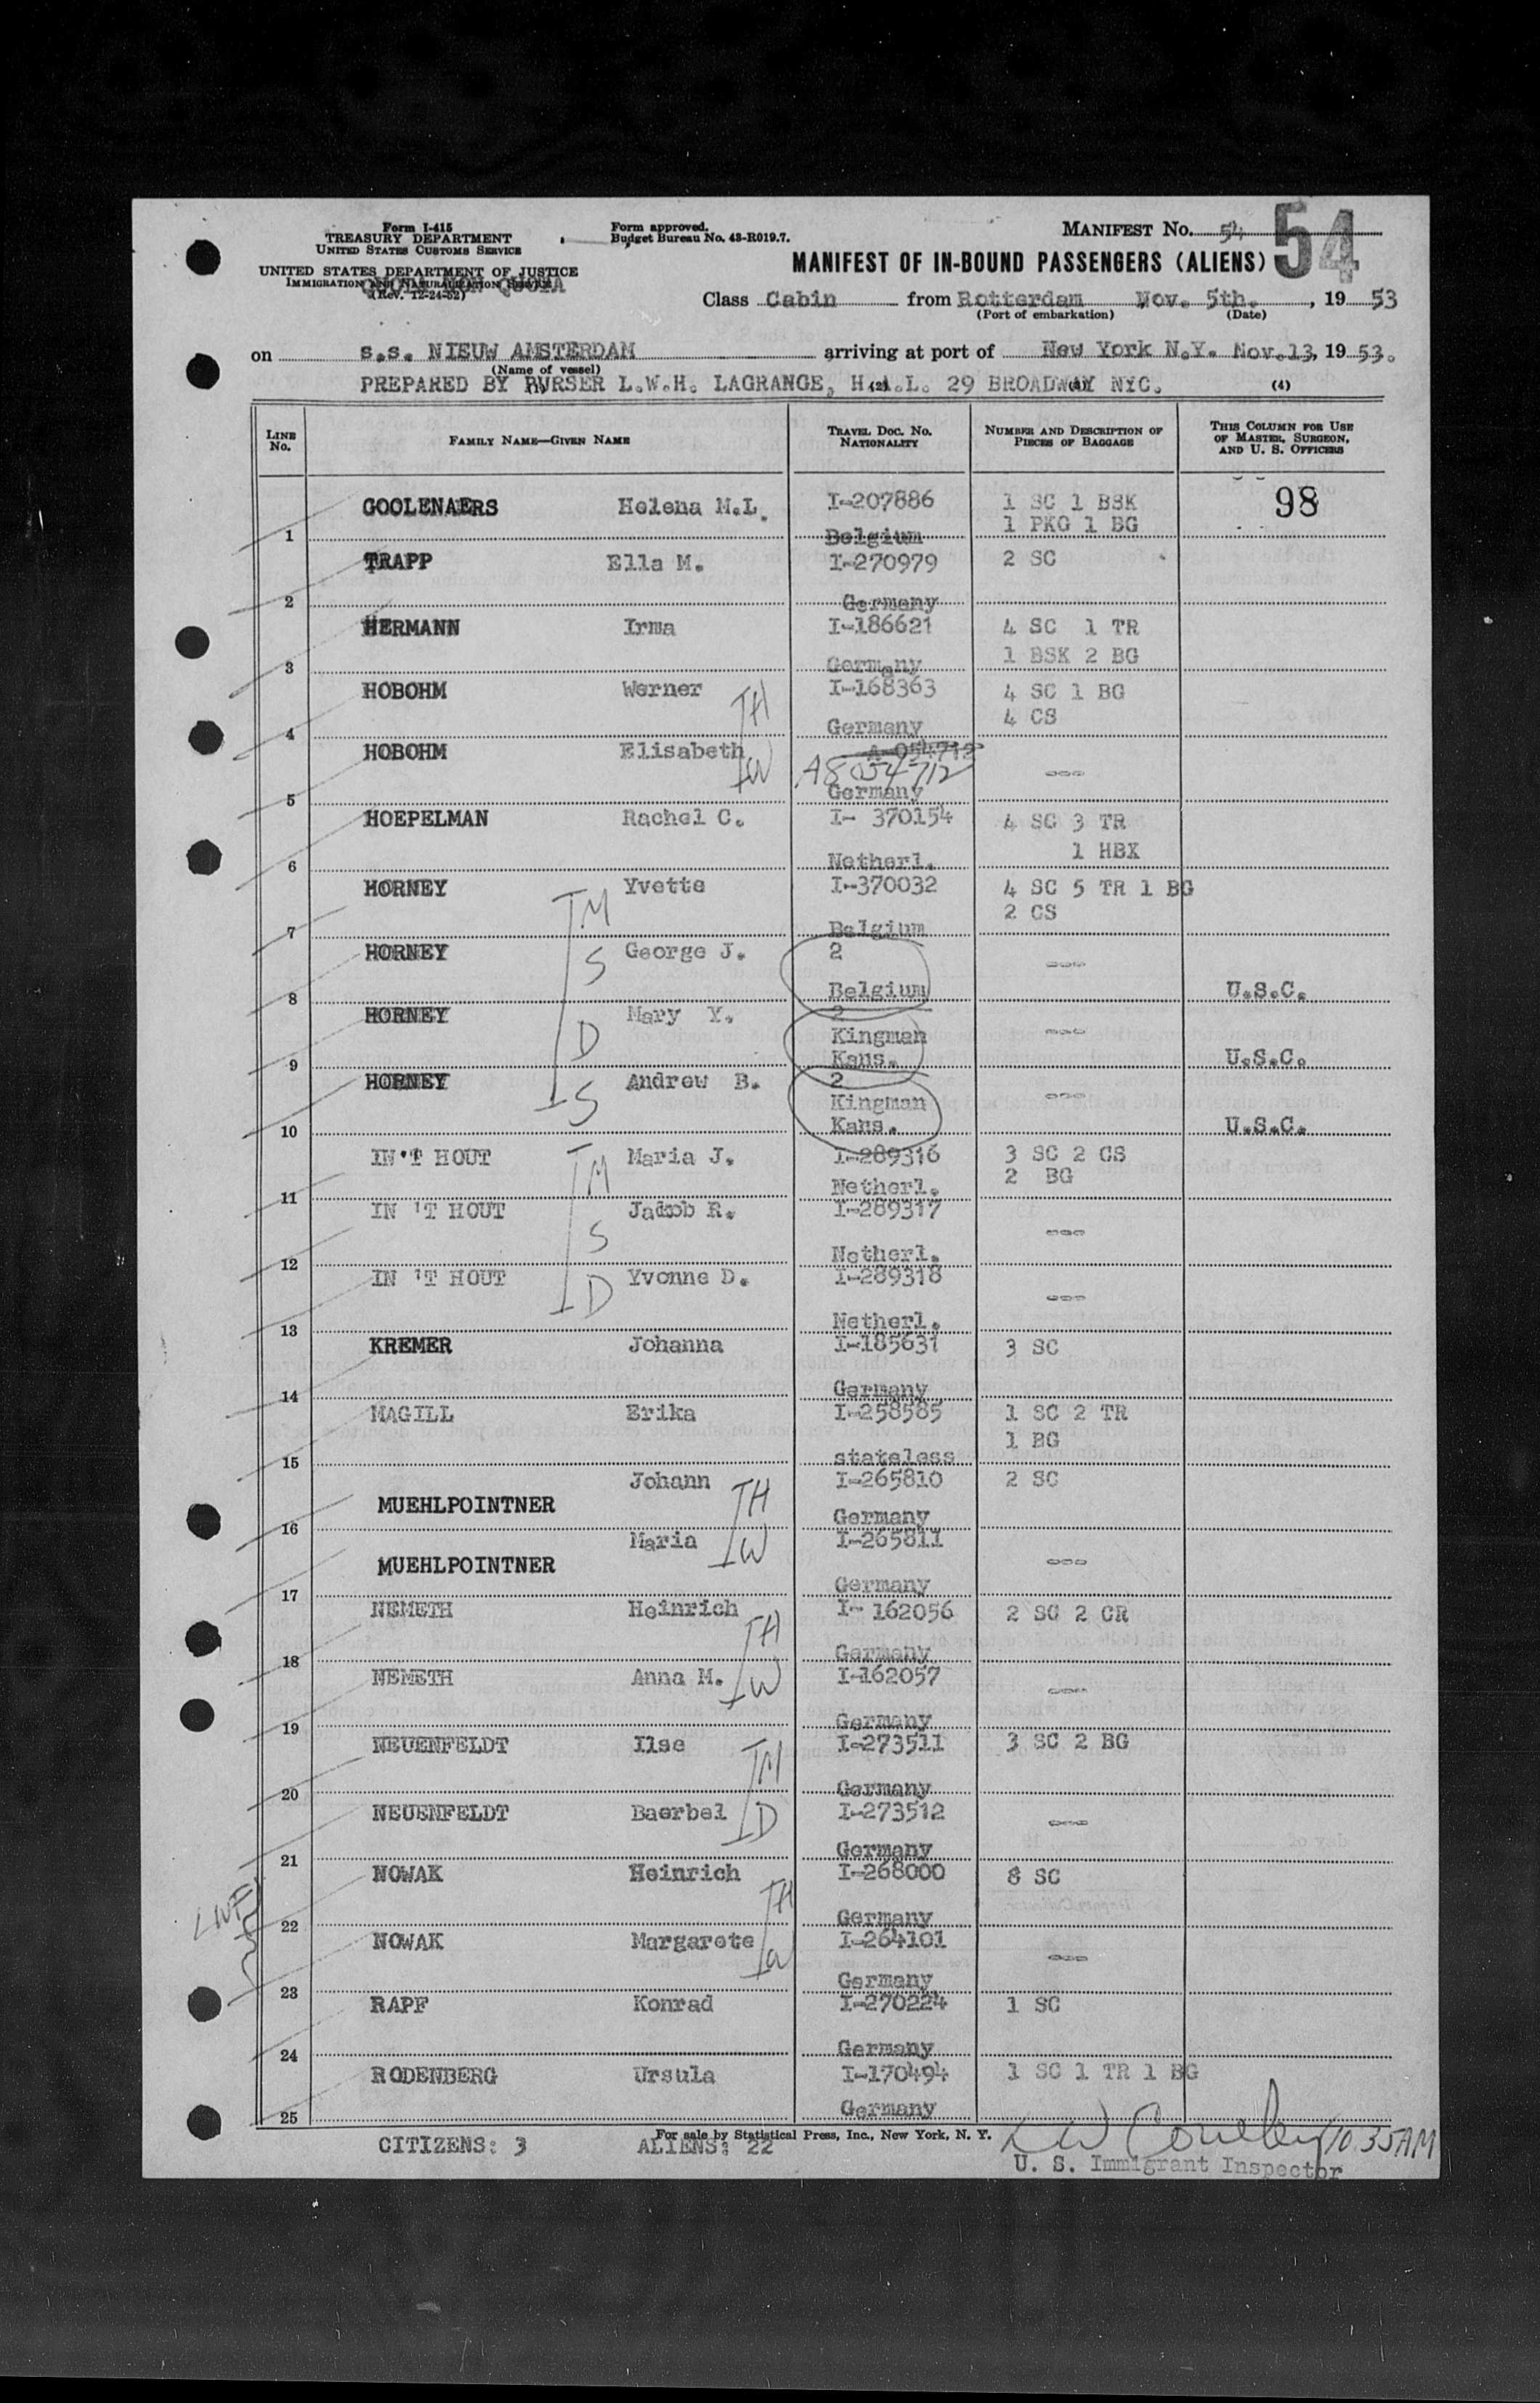 Form I-415
TREASURY DEPARTMENT
UNITED STATES CUSTOMS SERVICE
UNITED STATES DEPARTMENT OF JUSTICE
IMMIGRATION AND NATURALIZATION SERVICE
(Rev. 12-24-52)
QUOTA
Form approved.
Budget Bureau No. 43-R019.7.
MANIFEST No. 54
54
MANIFEST OF IN-BOUND PASSENGERS (ALIENS)
Class Cabin from Rotterdam Nov. 5th. , 19 53
(Port of embarkation) (Date)
on s.s. NIEUW AMSTERDAM arriving at port of New York N.Y. Nov.13, 19 53.
(Name of vessel)
PREPARED BY PURSER L.W.H. LAGRANGE, H.A.L. 29 BROADWAY NYC.
(1) (2) (3) (4)
LINE No. FAMILY NAME—GIVEN NAME TRAVEL DOC. No. NATIONALITY NUMBER AND DESCRIPTION OF PIECES OF BAGGAGE THIS COLUMN FOR USE OF MASTER, SURGEON, AND U. S. OFFICERS
GOOLENAERS Helena M.L. I-207886 1 SC 1 BSK 98
1 PKG 1 BG
1 Belgium
TRAPP Ella M. I-270979 2 SC
2 Germany
HERMANN Irma I-186621 4 SC 1 TR
1 BSK 2 BG
3 Germany
HOBOHM Werner TH I-168363 4 SC 1 BG
4 CS
4 Germany
HOBOHM Elisabeth W A-054712 ---
A8 054712
5 Germany
HOEPELMAN Rachel C. I- 370154 4 SC 3 TR
1 HBX
6 Netherl.
HORNEY Yvette M I-370032 4 SC 5 TR 1 BG
2 CS
7 Belgium
HORNEY S George J. 2 ---
8 Belgium U.S.C.
HORNEY D Mary Y. 2 ---
Kingman
9 Kans. U.S.C.
HORNEY S Andrew B. 2 ---
Kingman
10 Kans. U.S.C.
IN'T HOUT M Maria J. I-289316 3 SC 2 CS
2 BG
11 Netherl.
IN 'T HOUT S Jacob R. I-289317 ---
12 Netherl.
IN 'T HOUT D Yvonne D. I-289318 ---
13 Netherl.
KREMER Johanna I-185631 3 SC
14 Germany
MAGILL Erika I-258585 1 SC 2 TR
1 BG
15 stateless
Johann TH I-265810 2 SC
MUEHLPOINTNER
16 Germany
Maria W I-265811 ---
MUEHLPOINTNER
17 Germany
NEMETH Heinrich TH I- 162056 2 SC 2 CR
18 Germany
NEMETH Anna M. W I-162057 ---
19 Germany
NEUENFELDT Ilse M I-273511 3 SC 2 BG
20 Germany
NEUENFELDT Baerbel D I-273512 ---
21 Germany
NOWAK Heinrich TH I-268000 8 SC
22 Germany
NOWAK Margarete W I-264101 ---
23 Germany
RAPF Konrad I-270224 1 SC
24 Germany
RODENBERG Ursula I-170494 1 SC 1 TR 1 BG
25 Germany
For sale by Statistical Press, Inc., New York, N. Y.
CITIZENS: 3 ALIENS: 22
10 35AM
U. S. Immigrant Inspector